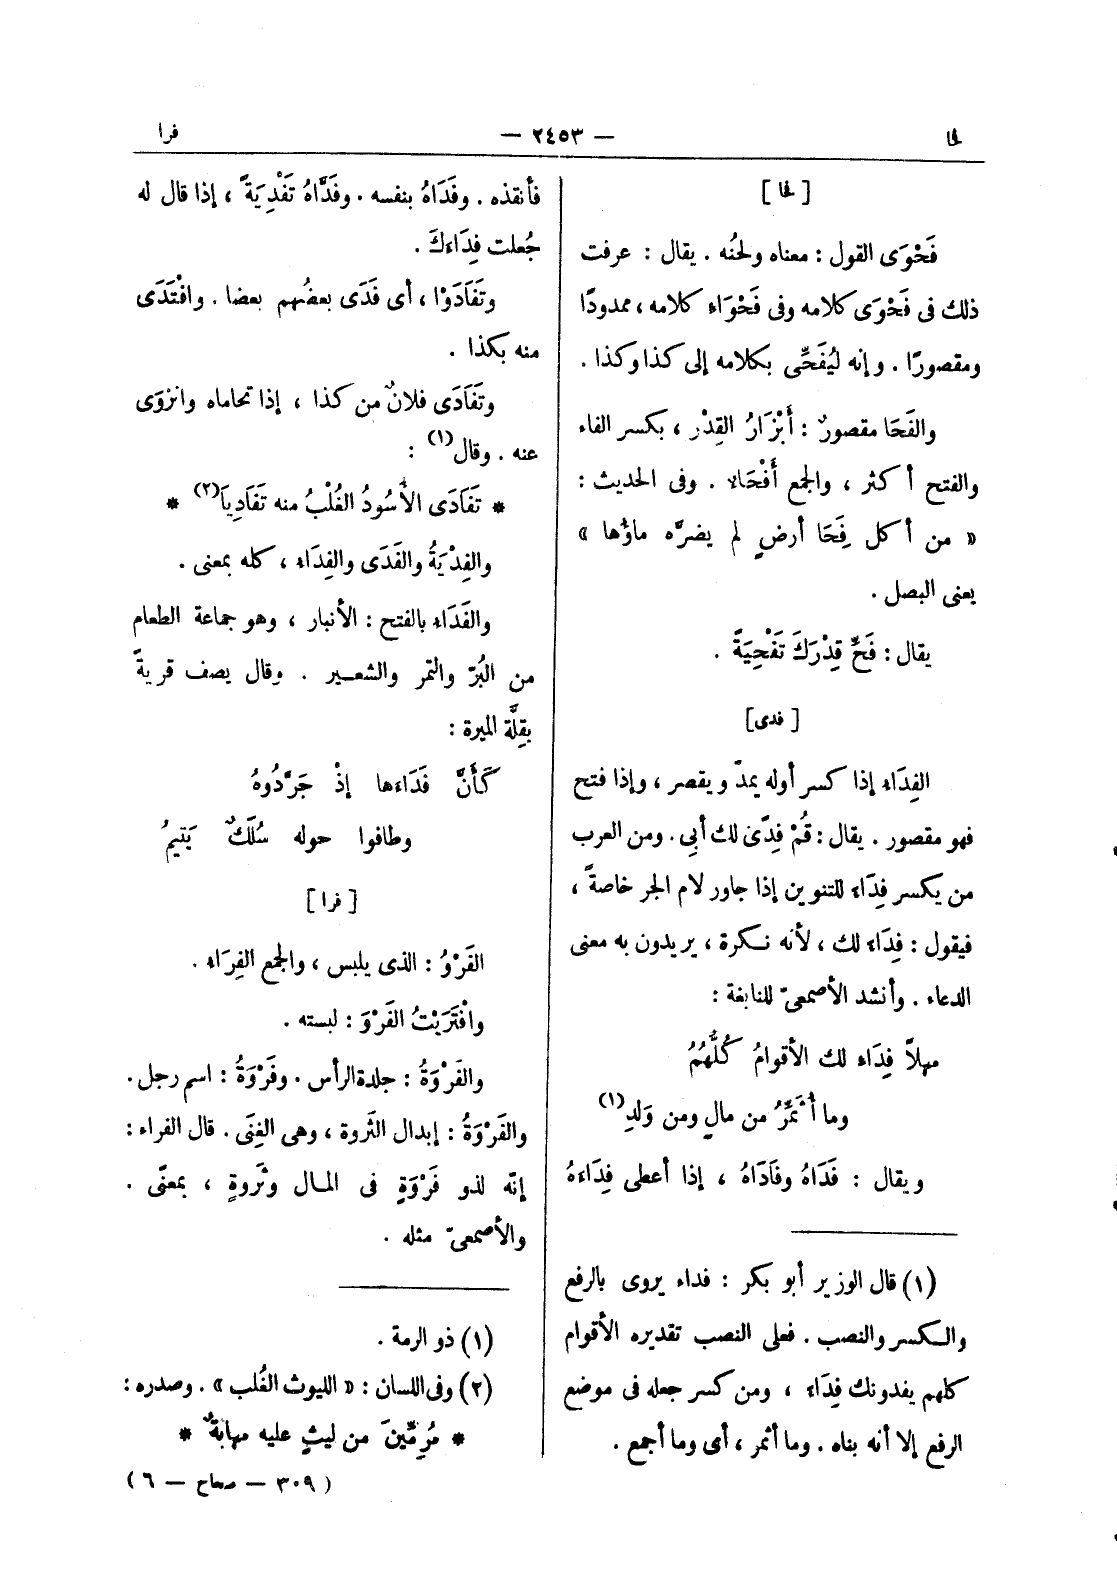 فحا
— ٢٤٥٣ —
فرا
[ فحا ]
فَحْوَى القول : معناه ولحنُه . يقال : عرفت
ذلك فى فَحْوَى كلامه وفى فَحْوَاءِ كلامه ، ممدودًا
ومقصورًا . وإنه لَيُفَحِّى بكلامه إلى كذا وكذا .
والفَحَا مقصورٌ : أَبْزَارُ القِدْرِ ، بكسر الفاء
والفتح أكثر ، والجمع أَفْحَاءٌ . وفى الحديث :
« من أكل فِحَا أرضٍ لم يضرَّه ماؤُها »
يعنى البصل .
يقال : فَحِّ قِدْرَكَ تَفْحِيَةً .
[ فدى ]
الفِدَاء إذا كسر أوله يمدّ ويقصر ، وإذا فتح
فهو مقصور . يقال : قُمْ فِدًى لك أبى . ومن العرب
من يكسر فِدَاءِ للتنوين إذا جاور لام الجر خاصةً ،
فيقول : فِدَاءٍ لك ، لأنه نكرة ، يريدون به معنى
الدعاء . وأنشد الأصمعىّ للنابغة :
مهلاً فِدَاءٍ لك الأقوامُ كُلُّهُمُ
وما أُثَمِّرُ من مالٍ ومن وَلَدِ (١)
ويقال : فَدَاهُ وفَادَاهُ ، إذا أعطى فِدَاءَهُ
(١) قال الوزير أبو بكر : فداء يروى بالرفع
والكسر والنصب . فعلى النصب تقديره الأقوام
كلهم يفدونك فِدَاءً ، ومن كسر جعله فى موضع
الرفع إلا أنه بناه . وما أثمر ، أى وما أجمع .
فأنقذه . وفَدَاهُ بنفسه . وفَدَّاهُ تَفْدِيَةً ، إذا قال له
جُعلت فِدَاءَكَ .
وتَفَادَوْا ، أى فَدَى بعضُهم بعضا . وافْتَدَى
منه بكذا .
وتَفَادَى فلانٌ من كذا ، إذا تحاماه وانزوَى
عنه . وقال (١) :
* تَفَادَى الأُسُودُ الغُلْبُ منه تَفَادِيَا (٢) *
والفِدْيَةُ والفَدَى والفِدَاء ، كله بمعنى .
والفَدَاء بالفتح : الأنبار ، وهو جماعة الطعام
من البُرّ والتمر والشعير . وقال يصف قريةً
بقِلَّة الميرة :
كَأَنَّ فَدَاءها إذْ جَرَّدُوهُ
وطافوا حوله سُلَكٌ يَتيمُ
[ فرا ]
الفَرْوُ : الذى يلبس ، والجمع الفِرَاء .
وافْتَرَيْتُ الفَرْوَ : لبسته .
والفَرْوَةُ : جلدة الرأس . وفَرْوَةُ : اسم رجل .
والفَرْوَةُ : إبدال الثَروة ، وهى الغِنَى . قال الفراء :
إنّه لذو فَرْوَةٍ فى المال وثَروةٍ ، بمعنًى .
والأصمعىّ مثله .
(١) ذو الرمة .
(٢) وفى اللسان : « الليوث الغُلب » . وصدره :
* مُرِمِّينَ من ليثٍ عليه مهابةٌ *
( ٣٠٩ — صحاح — ٦ )